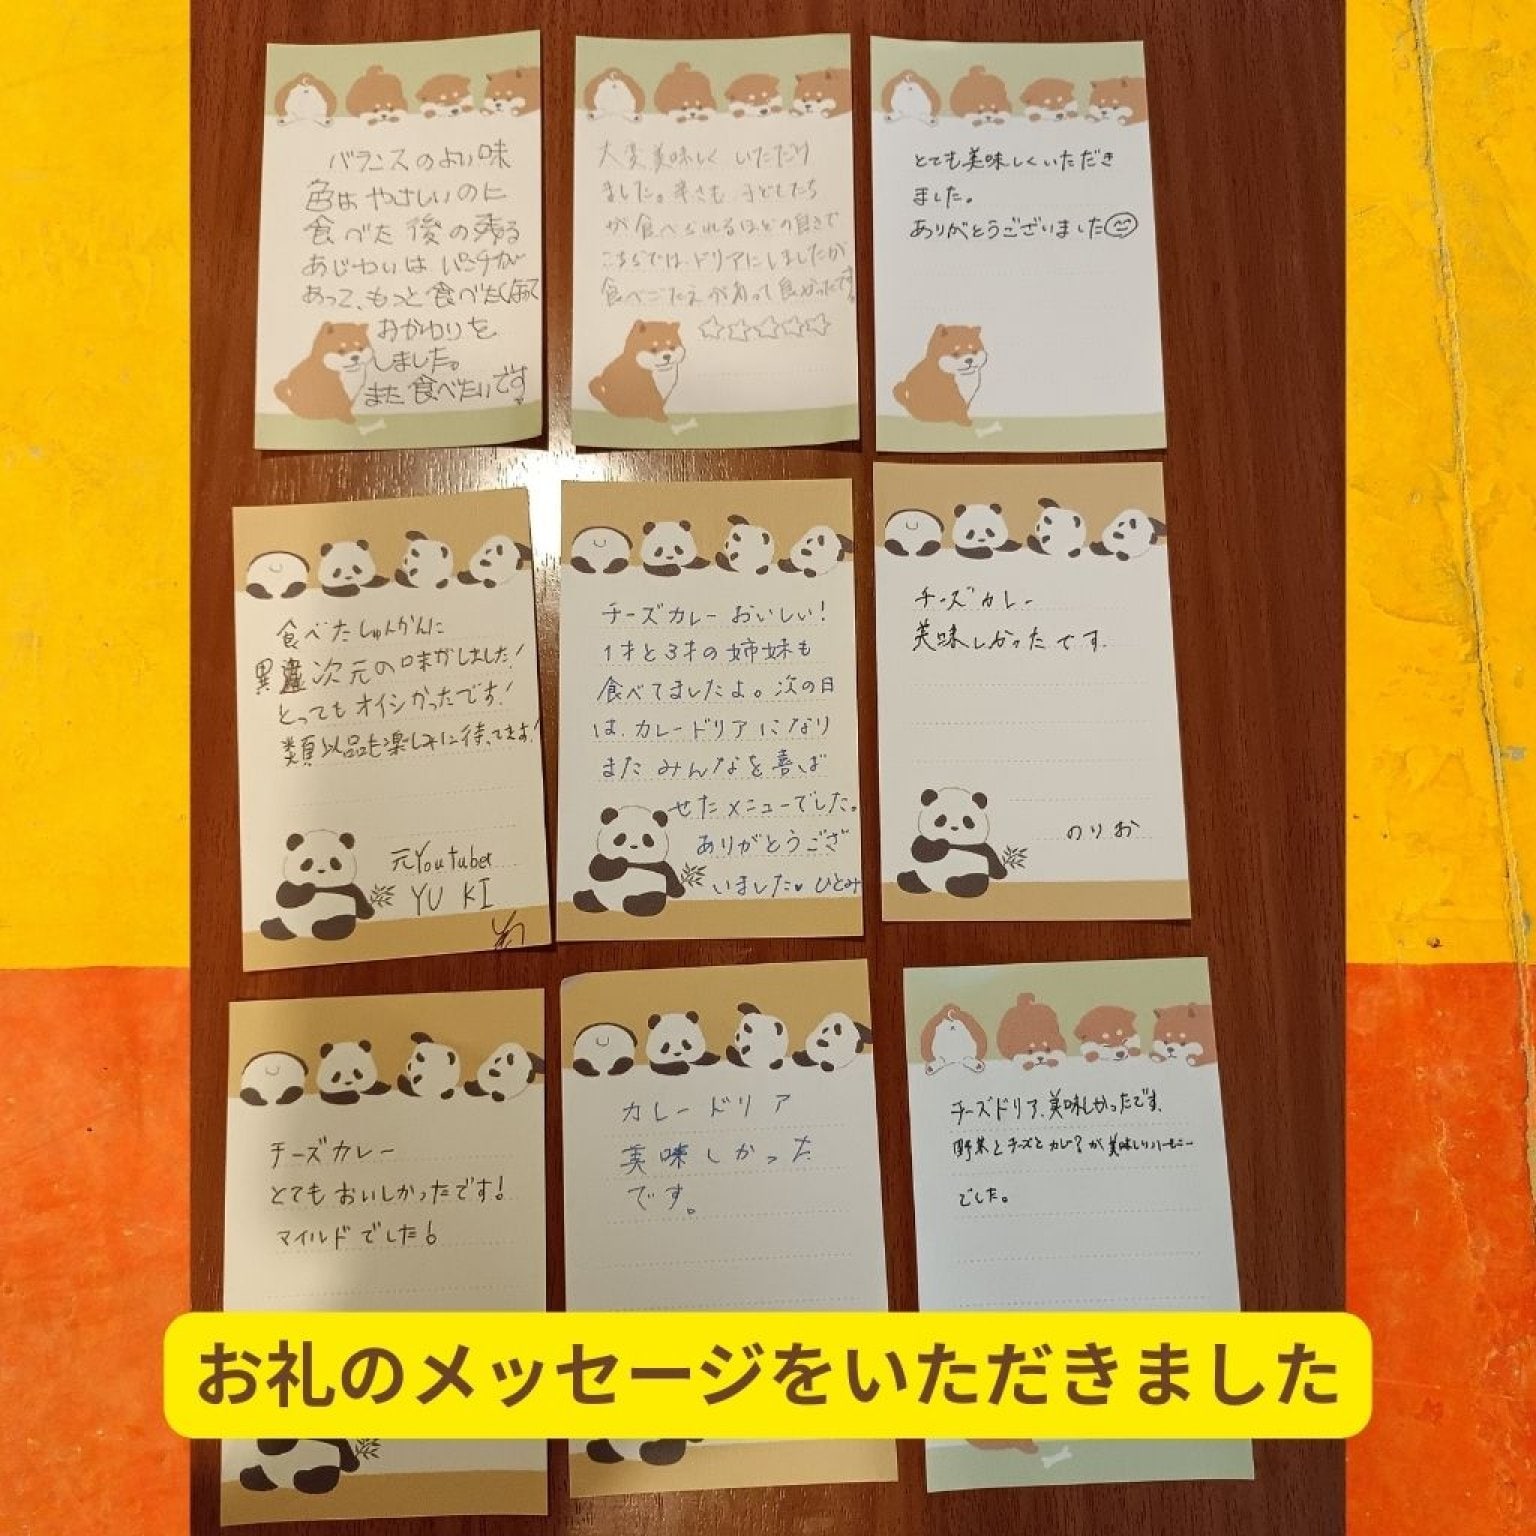 バランスのよい味
色はやさしいのに
食べた後の残る
あじわいはパンチが
あって、もっと食べたくなって
おかわりを
しました。
また食べたいです
大変美味しくいただけ
ました。辛さも、子どもたち
が食べられるほどの良さで
こちらでは、ドリアにしましたが
食べごたえがあって良かったです。
☆☆☆☆☆
とても美味しくいただき
ました。
ありがとうございました
食べたしゅんかんに
異次元の味がしました!
とってもオイシかったです!
類似品も楽しみに待ってます!
元Youtuber
YU KI
チーズカレーおいしい!
1才と3才の姉妹も
食べてましたよ。次の日
は、カレードリアになり
またみんなを喜ば
せたメニューでした。
ありがとうござ
いました♥ ひとみ
チーズカレー
美味しかったです.
のりお
チーズカレー
とてもおいしかったです!
マイルドでした!
カレードリア
美味しかった
です。
チーズドリア、美味しかったです.
野菜とチーズとカレーが美味しいハーモニー
でした。
お礼のメッセージをいただきました